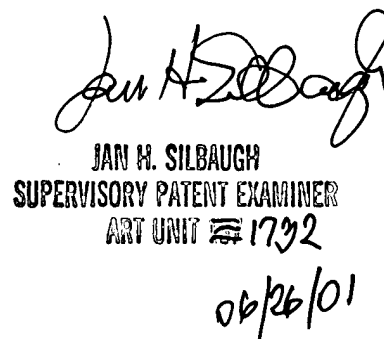 Jan H. Silbaugh
JAN H. SILBAUGH
SUPERVISORY PATENT EXAMINER
ART UNIT 1732
06/26/01